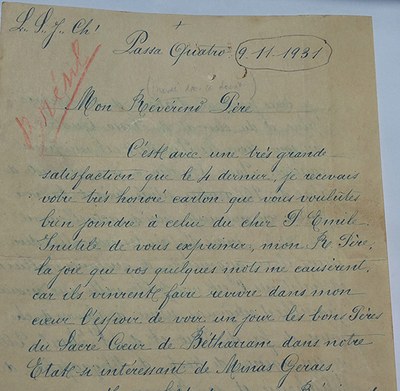 L. S. J. Ch.
+
Passa Quatro 9-11-1931
Mon Révérend Père
C'est avec une très grande
satisfaction que le 4 dernier, je recevais
votre très honoré carton que vous voulûtes
bien joindre à celui du cher P. Emile.
Inutile de vous exprimer, mon R. Père,
la joie que vos quelques mots me causèrent,
car ils vinrent faire revivre dans mon
cœur l'espoir de voir un jour les bons Pères
du Sacré Cœur de Bétharram dans notre
Etat si intéressant de Minas Geraes.